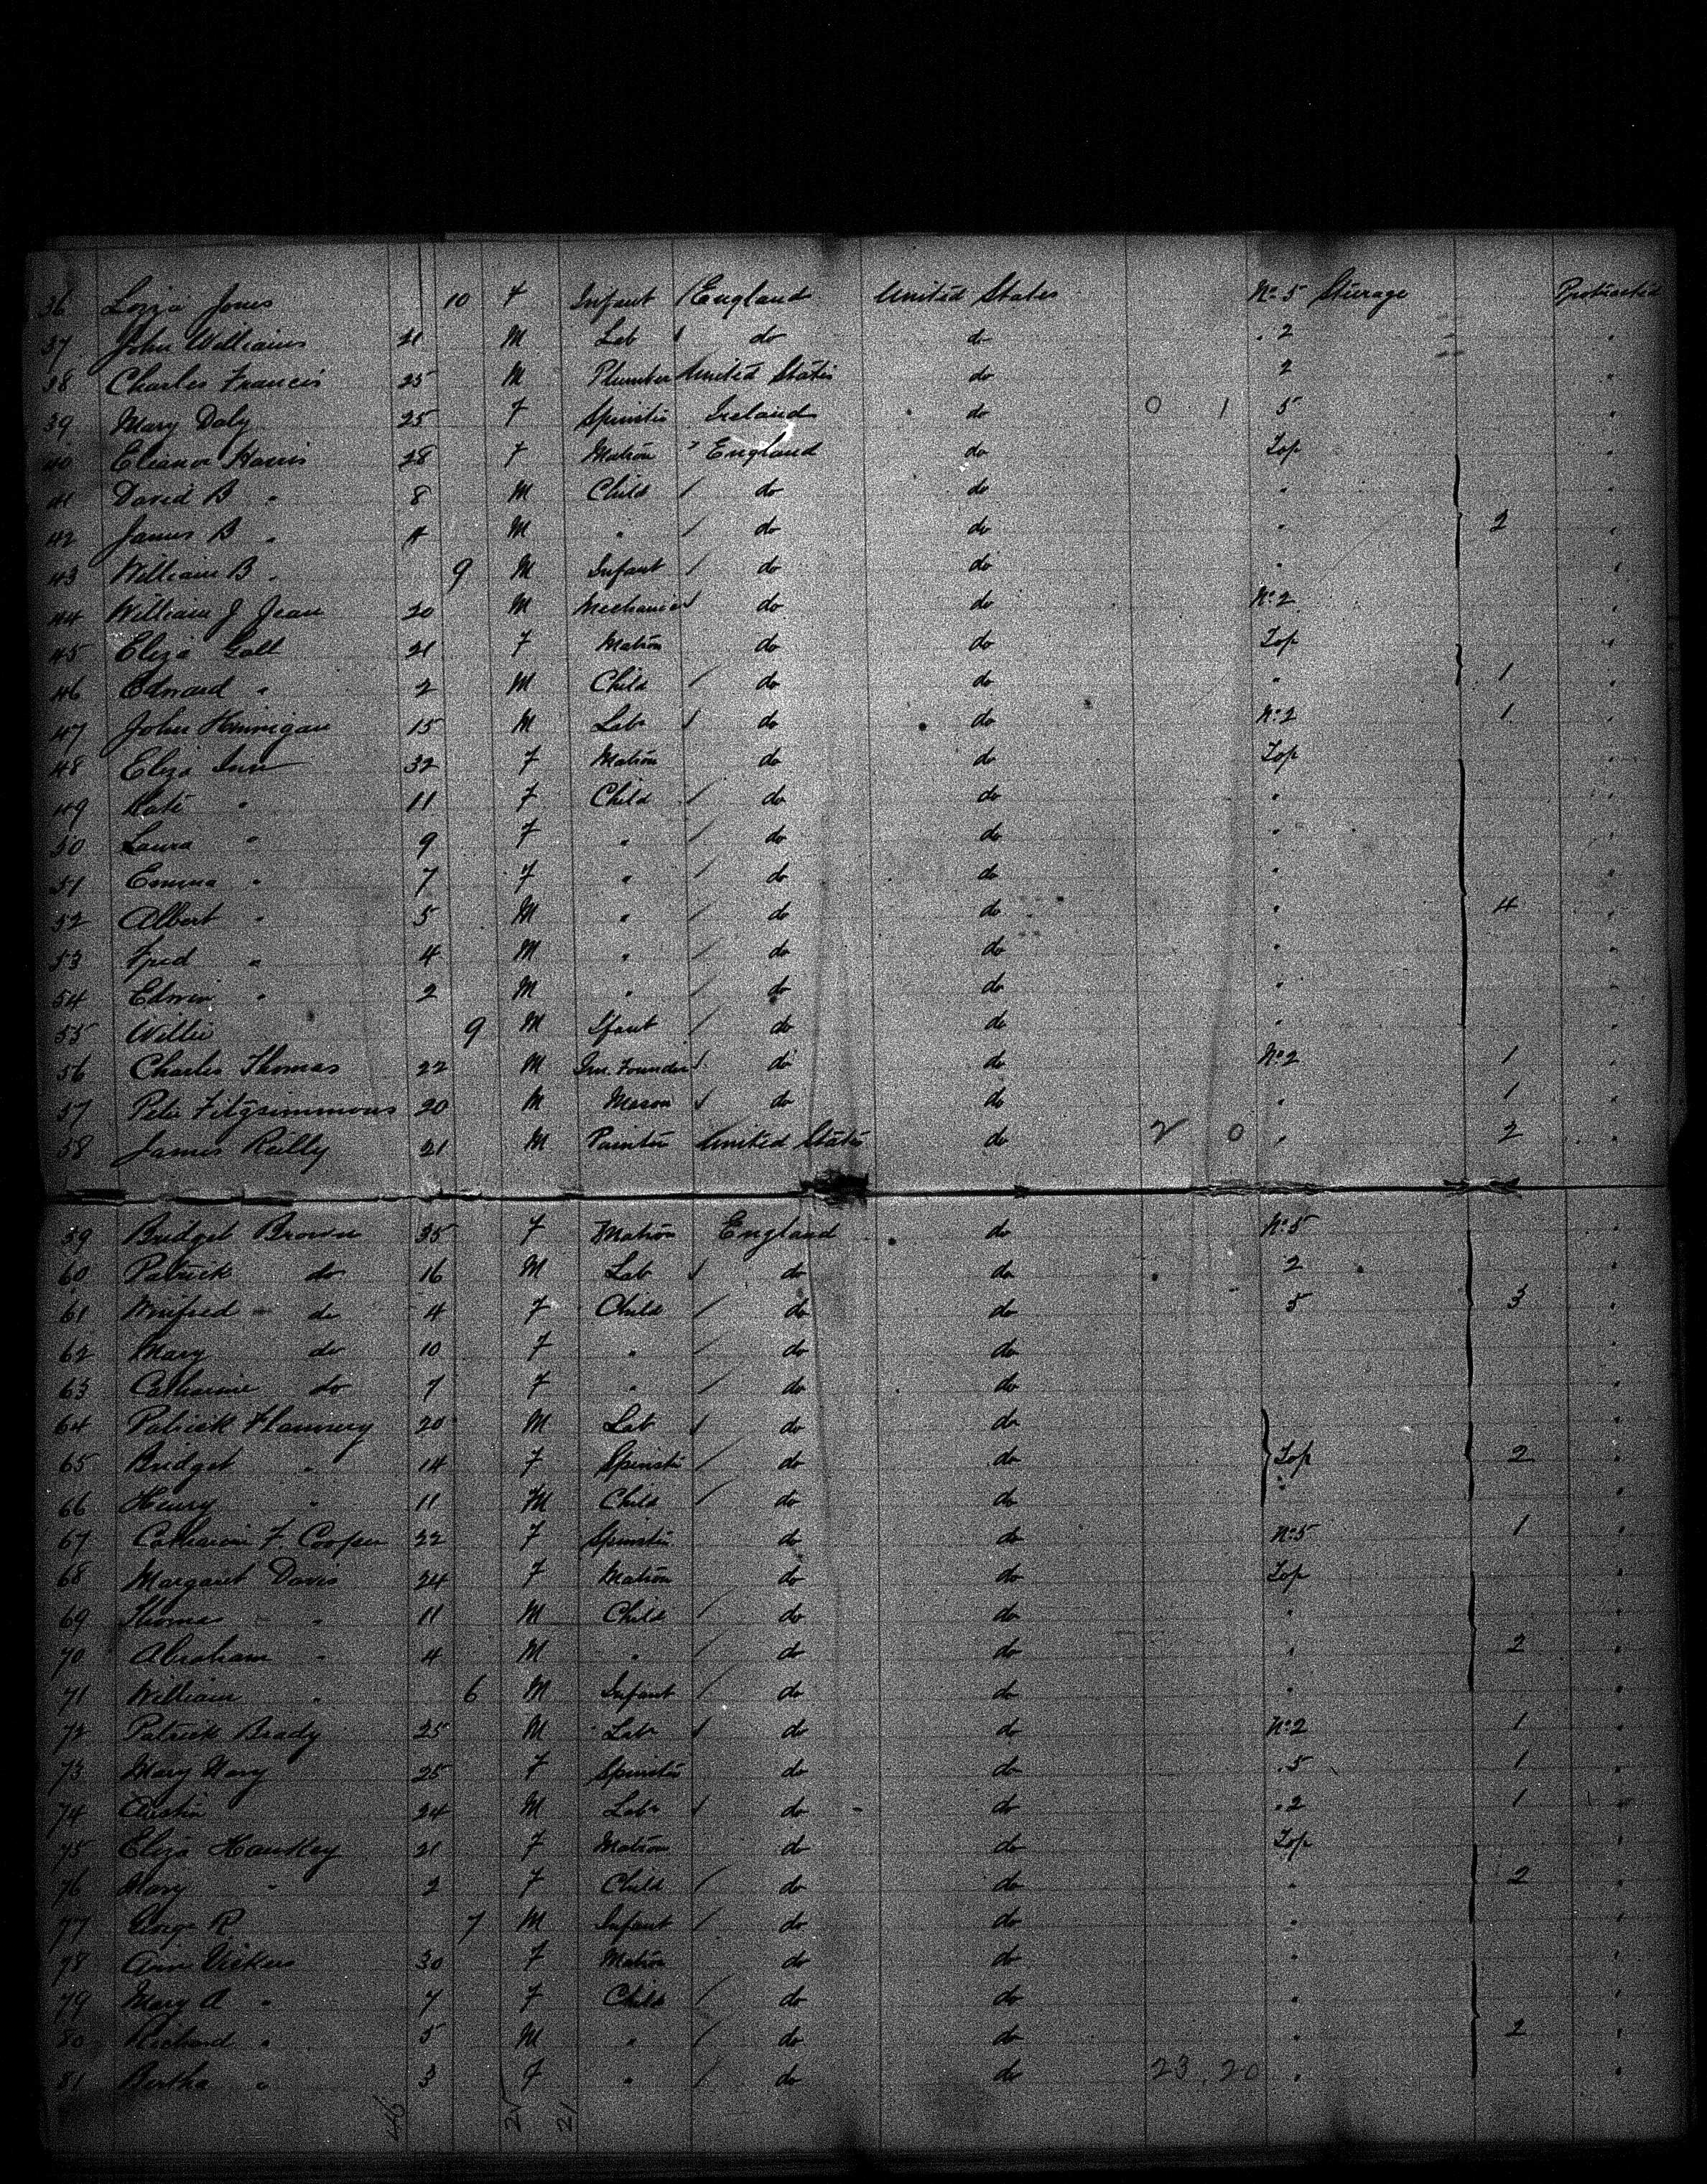 36 Lozza Jones 10 F Infant / England United States No. 5 Steerage Protracted
37 John Williams 21 M Lab do do " 2 "
38 Charles Francis 25 M Plumber United States do 2 "
39 Mary Daly 25 F Spinster Ireland do 0 1 5 "
40 Eleanor Harris 28 F Matron " England do Top "
41 David B " 8 M Child / do do " "
42 James B " 4 M " / do do " 2 "
43 William B " 9 M Infant / do do " "
44 William J Jean 20 M Mechanic do do No. 2 "
45 Eliza Galt 21 F Matron do do Top "
46 Edward " 2 M Child / do do " 1 "
47 John Hennigan 15 M Labr do do No. 2 1 "
48 Eliza 32 F Matron do do Top "
49 Kate " 11 F Child / do do " "
50 Laura " 9 F " / do do " "
51 Emma " 7 F " / do do " "
52 Albert " 5 M " / do do " 4 "
53 Fred " 4 M " / do do " "
54 Edwin " 2 M " / do do " "
55 Willie 9 M Ifant / do do " "
56 Charles Thomas 22 M Irn. Founder do do No. 2 1 "
57 Peter Fitzsimmons 20 M Mason do do " 1 "
58 James Reilly 21 M Painter United States do 2 0 " 2 "
59 Bridget Brown 35 F Matron England do No. 5 "
60 Patrick do 16 M Lab do do 2 "
61 Winifred do 4 F Child / do do 5 3 "
62 Mary do 10 F " / do do "
63 Catharine do 7 F " / do do "
64 Patrick Flannery 20 M Lab do do "
65 Bridget " 14 F Spinster / do do Top 2 "
66 Henry " 11 M Child / do do " "
67 Catharine F. Cooper 22 F Spinster do do No. 5 1 "
68 Margaret Davis 24 F Matron do do Top "
69 Thomas " 11 M Child / do do " "
70 Abraham " 4 M " / do do " 2 "
71 William " 6 M Infant / do do " "
72 Patrick Brady 25 M Labr do do No. 2 1 "
73 Mary 25 F Spinster do do " 5 1 "
74 Austin 24 M Labr do do " 2 1 "
75 Eliza Hawkey 21 F Matron do do Top "
76 Mary " 2 F Child / do do " 2 "
77 George R 7 M Infant / do do " "
78 Ann Vickers 30 F Matron do do " "
79 Mary A " 7 F Child / do do " "
80 Richard " 5 M " / do do " 2 "
81 Bertha " 3 F " / do do 23 . 20 " "
46 21